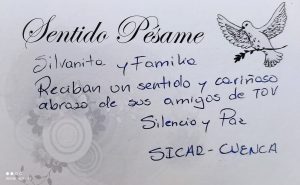 Sentido Pésame
Silvanita y Familia
Reciban un sentido y cariñoso
abrazo de sus amigos de TOV
Silencio y Paz
SICAR-CUENCA